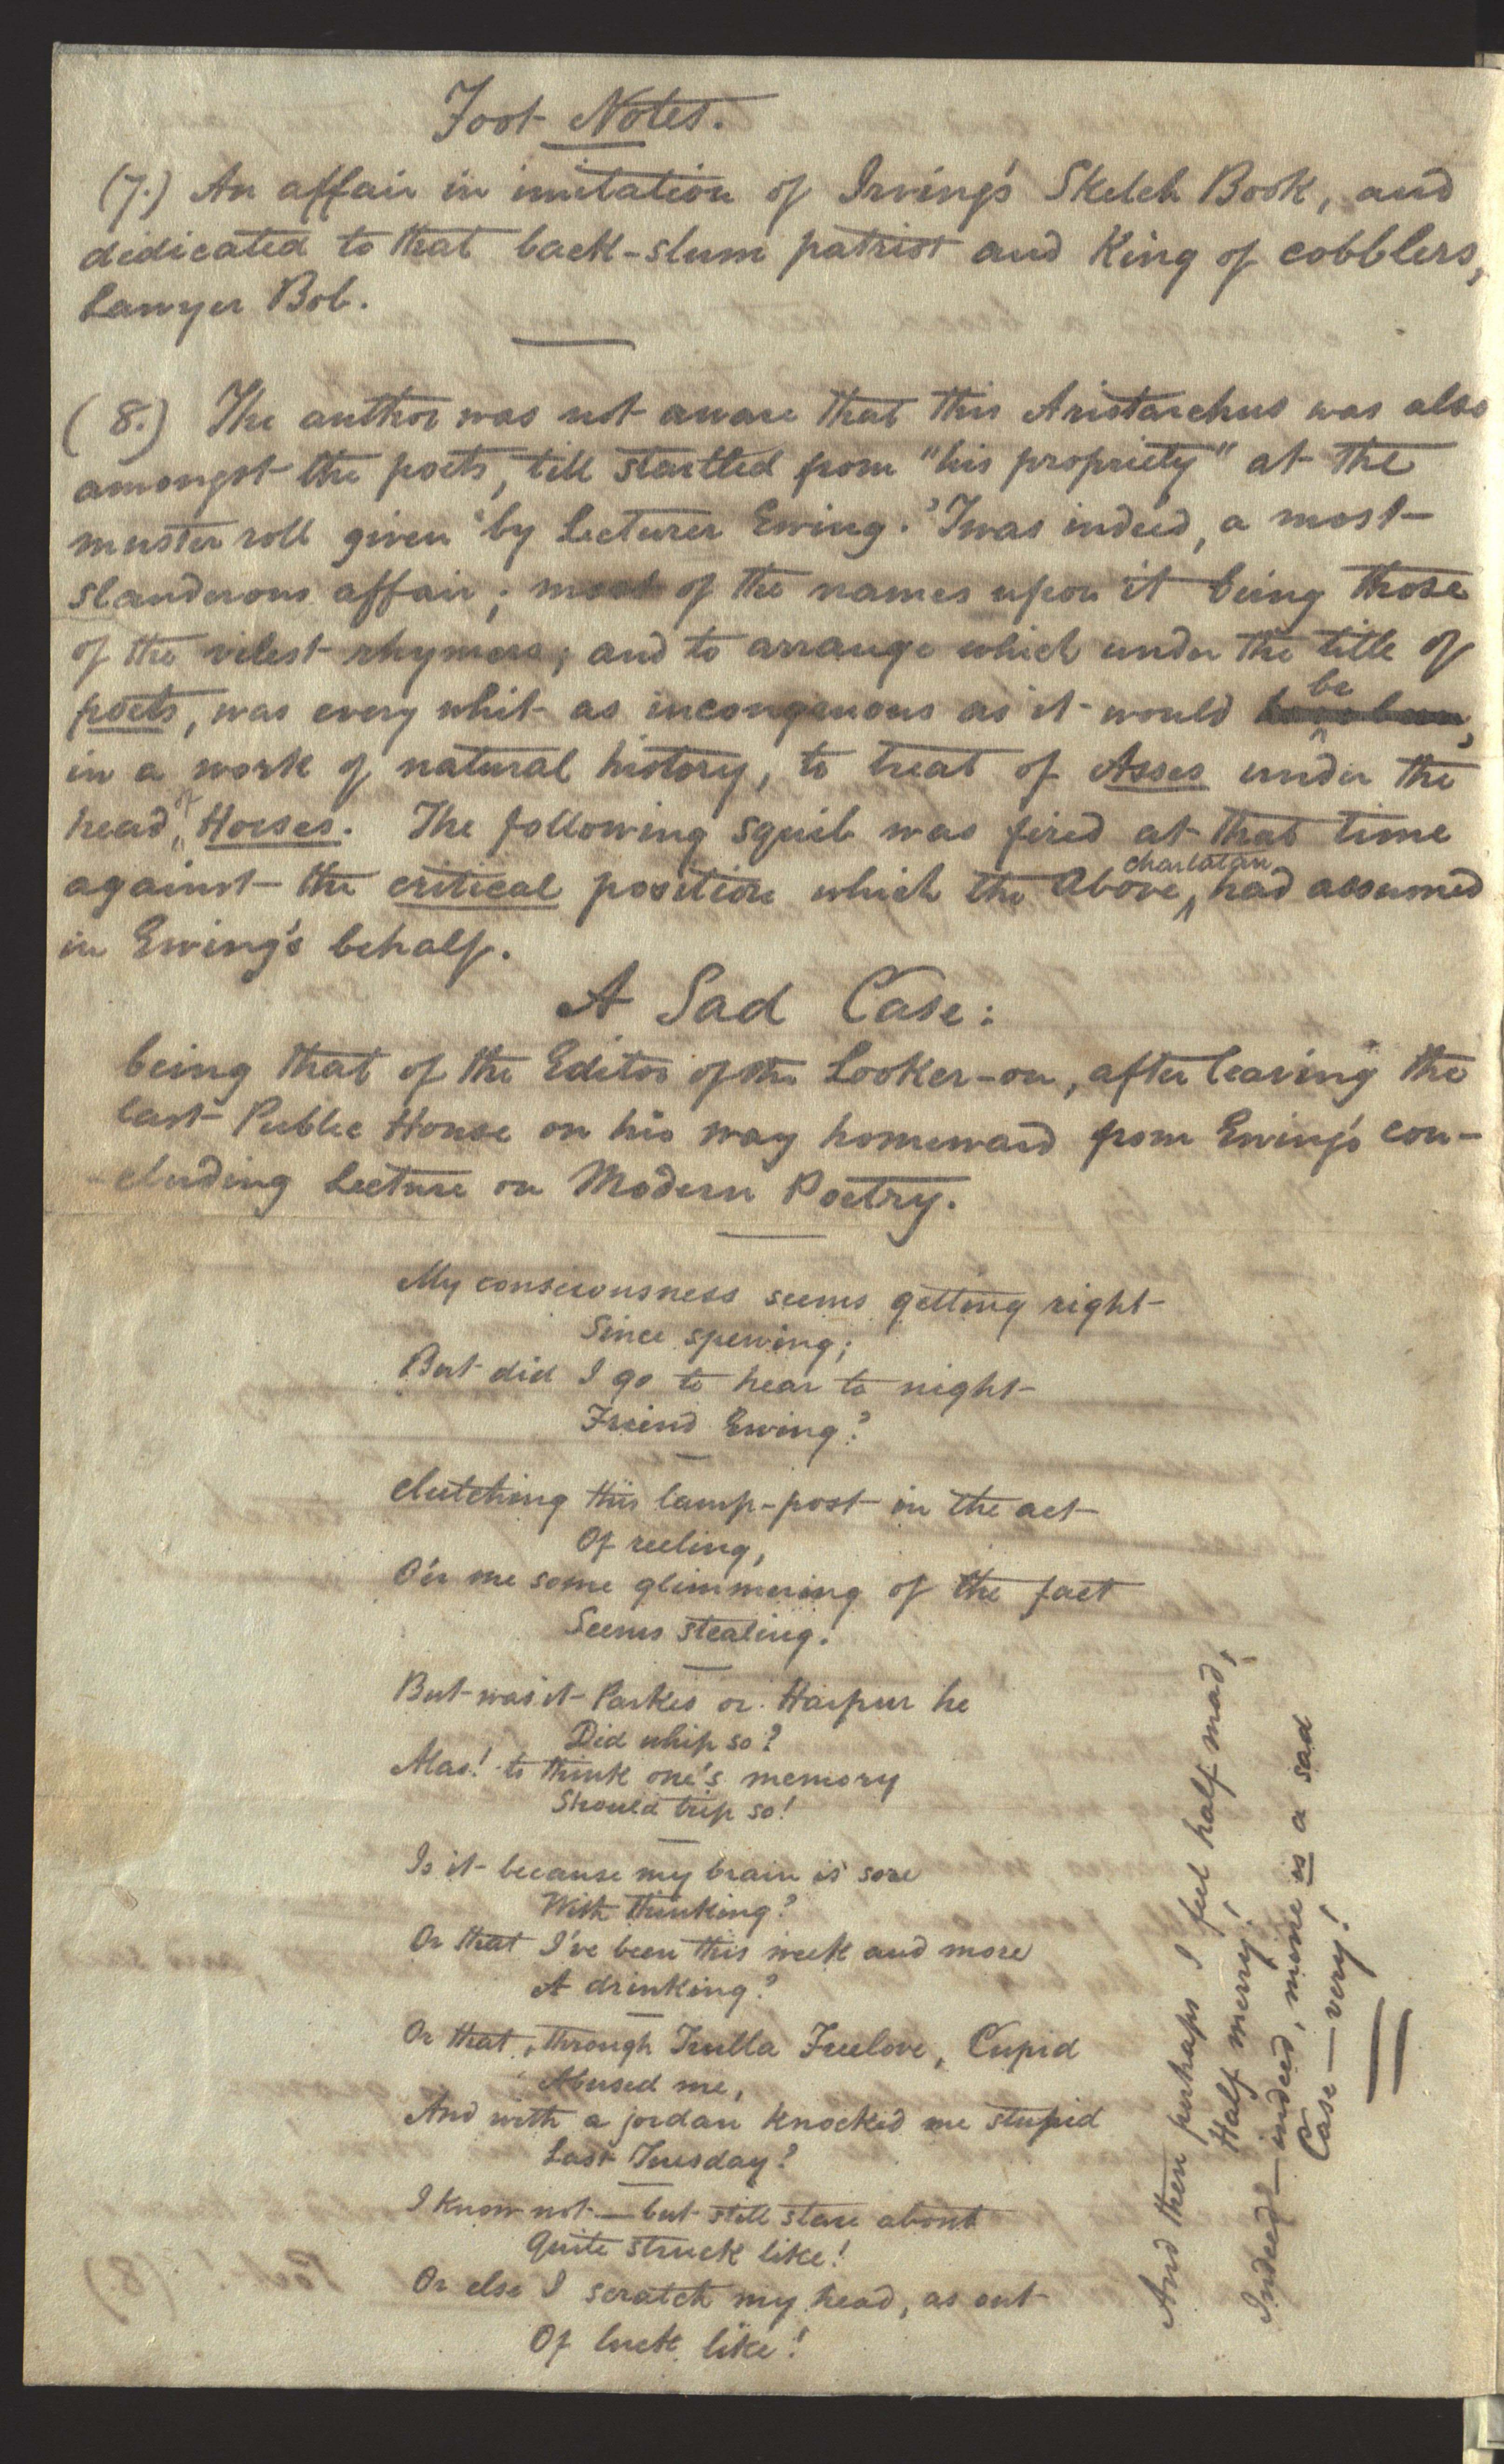 Foot Notes.
(7.) An affair in imitation of Irving's Sketch Book, and
dedicated to that back-slum patriot and King of cobblers,
Lawyer Bob.
(8.) The author was not aware that this Aristarchus was also
amongst the poets, till startled from "his propriety" at the
muster roll given by Lecturer Ewing. 'Twas indeed, a most
slanderous affair; most of the names upon it being those
of the vilest rhymers; and to arrange which under the title of
poets, was every whit as incongruous as it would be
in a work of natural history, to treat of Asses under the
head, of Horses. The following squib was fired at that time
against the critical position which the above charlatan, had assumed
in Ewing's behalf.
A Sad Case:
being that of the Editor of the Looker-on, after leaving the
last Public House on his way homeward from Ewing's con-
cluding Lecture on Modern Poetry.
My consciousness seems getting right
Since spewing;
But did I go to hear to night
Friend Ewing?
Clutching this lamp-post in the act
Of reeling,
O'er me some glimmering of the fact
Seems stealing.
But was it Parkes or Harpur he
Did whip so?
Alas! to think one's memory
Should trip so!
Is it because my brain is sore
With thinking?
Or that I've been this week and more
A drinking?
Or that, through Trulla Freelove, Cupid
Abused me,
And with a jordan knocked me stupid
Last Tuesday?
I know not—but still stare about
Quite struck like!
Or else I scratch my head, as out
Of luck like!
And then perhaps I feel half mad,
Half merry!
Indeed—indeed, mine is a sad
Case—very!